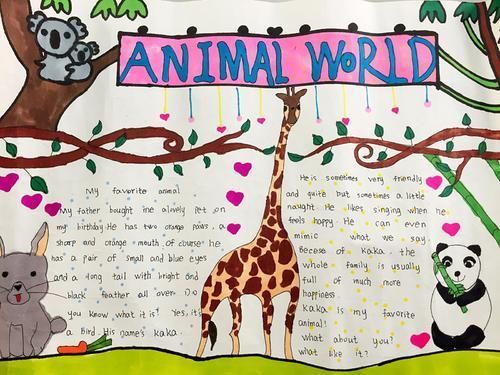 ANIMAL WORLD
My favorite animal
My father bought me alively pet on
my birthday. He has two orange paws, a
sharp and orange mouth, of course he
has a pair of small and blue eyes
and a long tail with bright and
black feather all over. Do
you know what it is? Yes, it's
a Bird. His name's kaka.
He is sometimes very friendly
and quite but sometimes a little
naught. He likes singing when he
feels happy. He can even
mimic what we say.
Becese of kaka. the
whole family is usually
full of much more
happiness
Kaka is my favorite
animal!
what about you?
what like it?